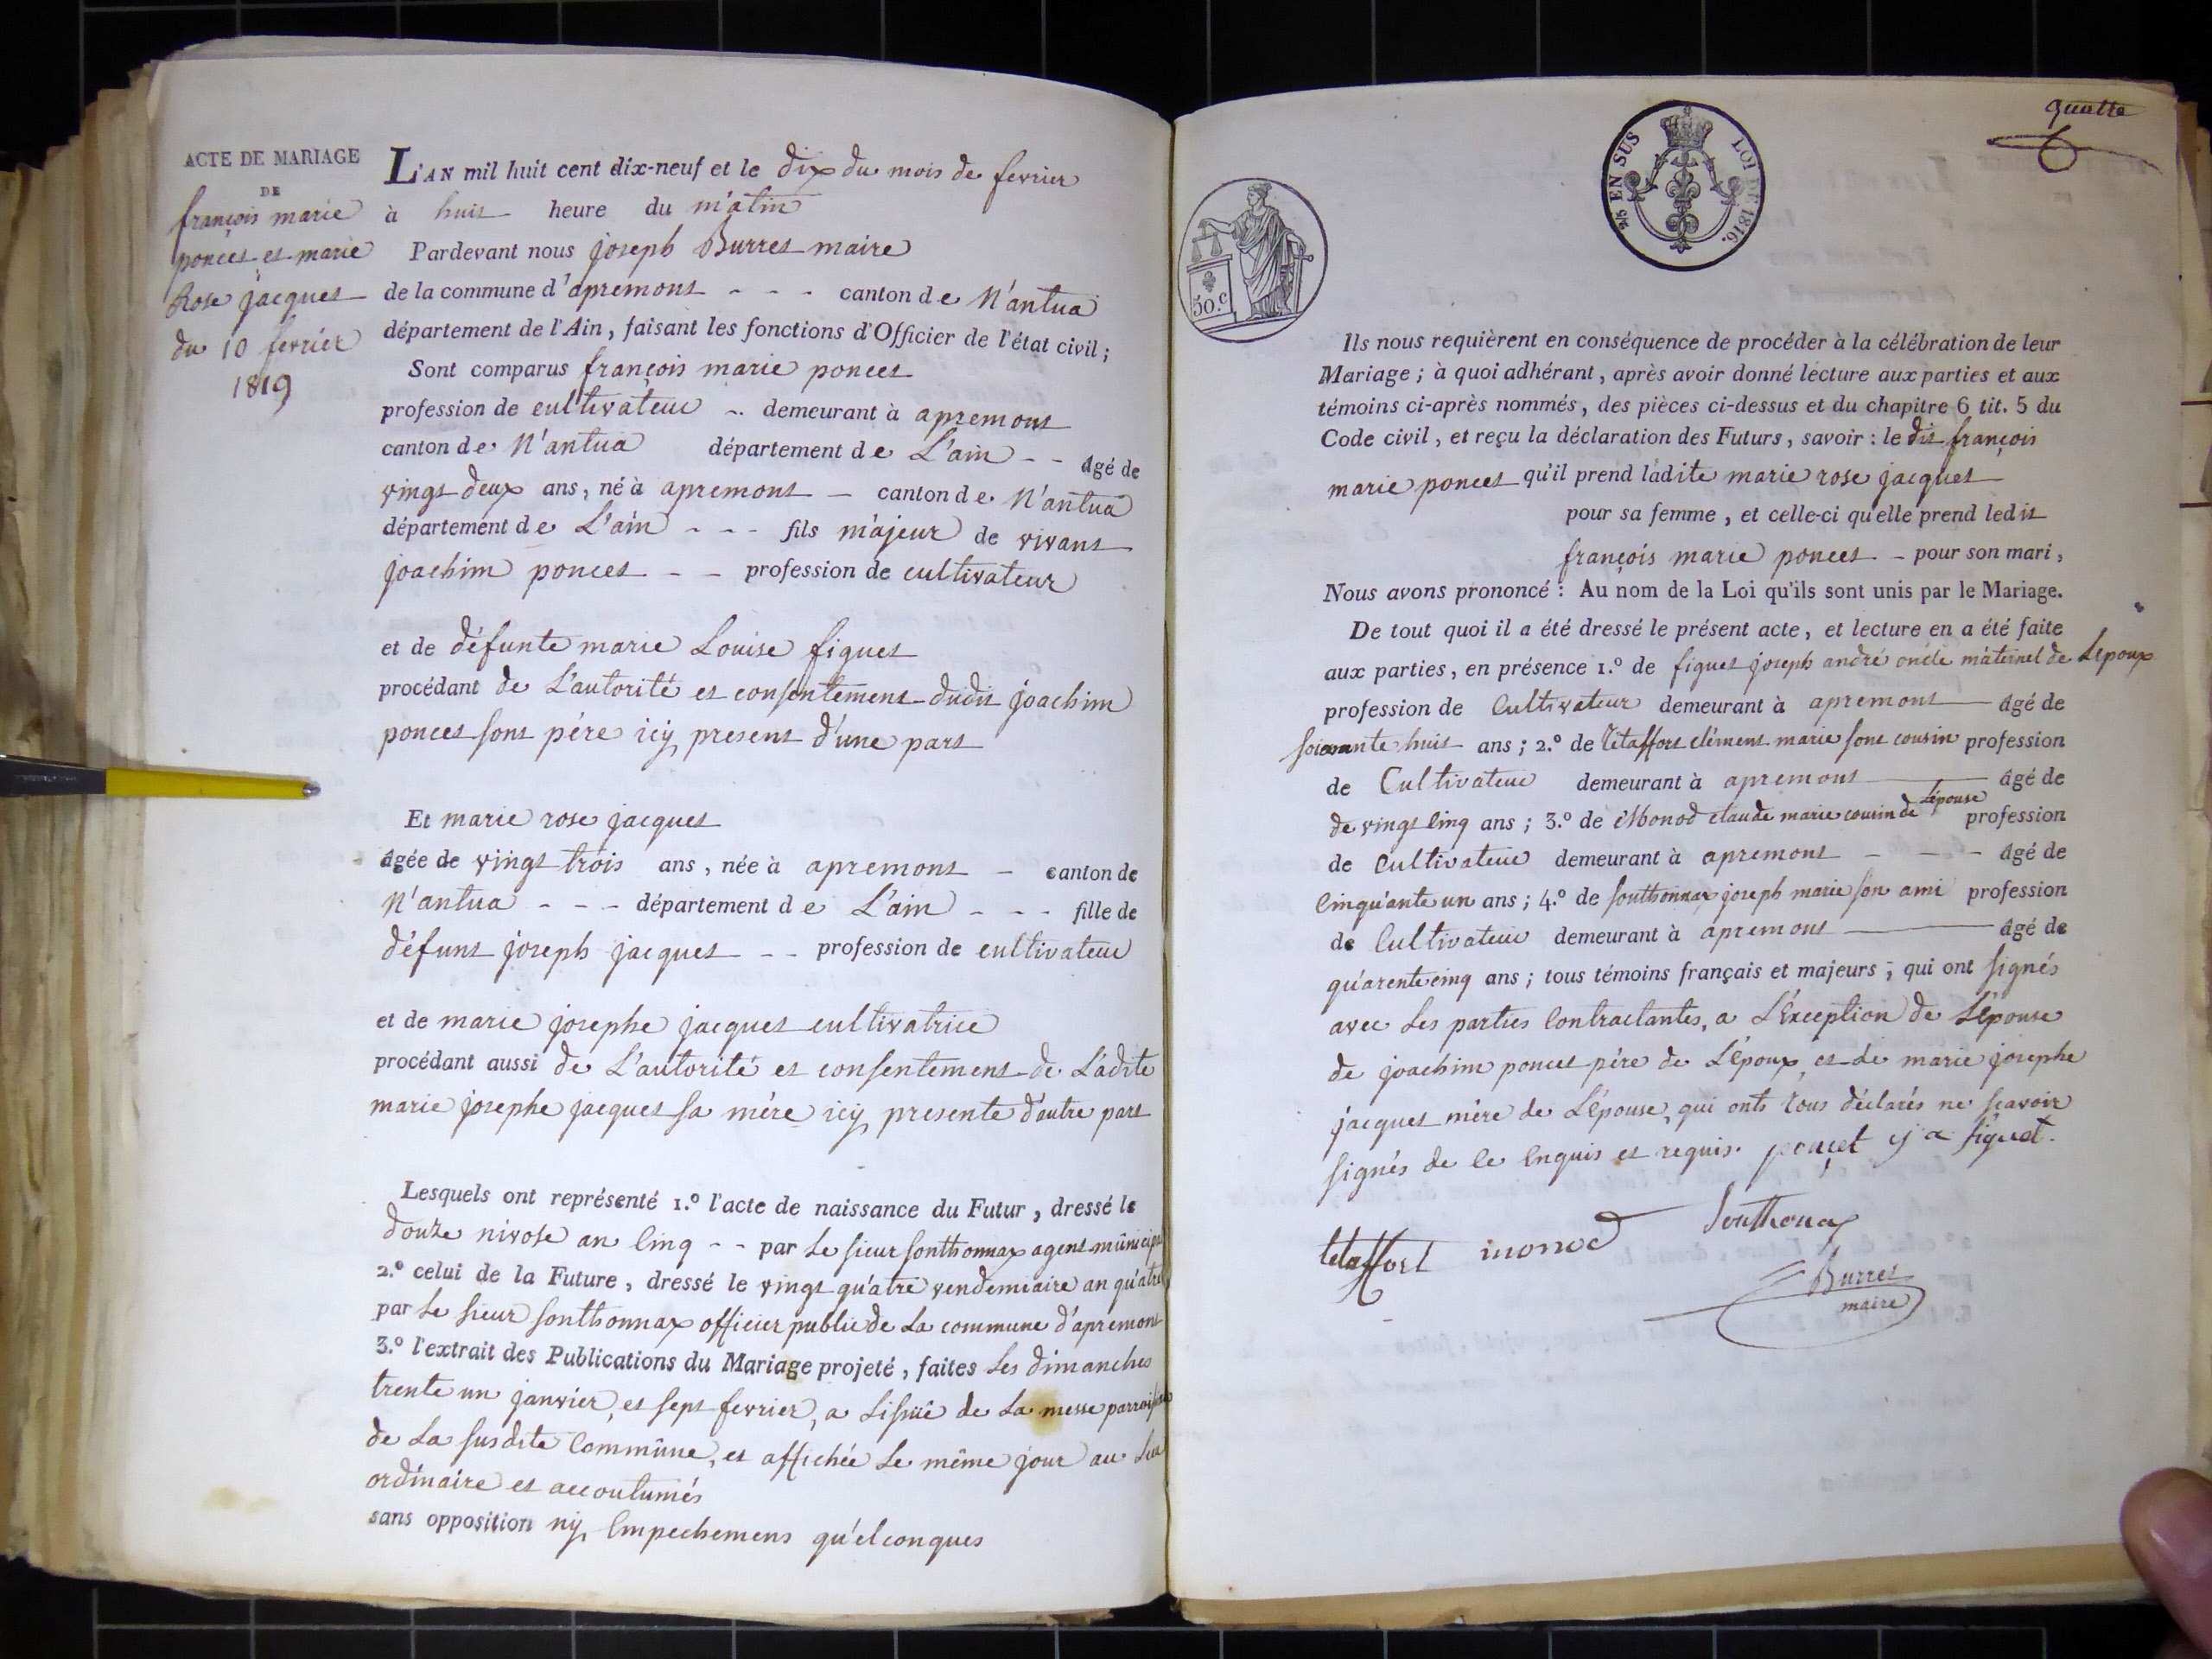 ACTE DE MARIAGE
DE
françois marie
poncet et marie
Rose jacquet
du 10 fevrier
1819
L'AN mil huit cent dix-neuf et le dix du mois de fevrier
à huit heure du matin
Pardevant nous joseph Burret maire
de la commune d'apremont - - - canton de N'antua
département de l'Ain, faisant les fonctions d'Officier de l'état civil;
Sont comparus françois marie poncet
profession de cultivateur -- demeurant à apremont
canton de N'antua département de L'ain - - âgé de
vingt deux ans, né à apremont - canton de N'antua
département de L'ain - - - fils majeur de vivant
joachim poncet - - profession de cultivateur
et de défunte marie Louise figuet
procédant de L'autorité et consentement dudit joachim
poncet sont pére icy present d'une part
Et marie rose jacquet
âgée de vingt trois ans, née à apremont - canton de
N'antua - - - département de L'ain - - - fille de
défunt joseph jacquet - - profession de cultivateur
et de marie josephe jacquet cultivatrice
procédant aussi de L'autorité et consentement de Ladite
marie josephe jacquet sa mére icy presente d'autre part
Lesquels ont représenté 1.º l'acte de naissance du Futur, dressé le
douze nivose an Cinq - - par le sieur sonthonnax agent municipal
2.º celui de la Future, dressé le vingt quatre vendemiaire an quatre
par le sieur sonthonnax officier public de la commune d'apremont
3.º l'extrait des Publications du Mariage projeté, faites les dimanches
trente un janvier, et sept fevrier, a Lissuë de la messe
de La susdite Commûne, et affichée le même jour au
ordinaire et accoutumés
sans opposition ny Empechement qu'elconques
quatre
2/5 EN SUS LOI DE 1816.
50.c
Ils nous requièrent en conséquence de procéder à la célébration de leur
Mariage; à quoi adhérant, après avoir donné lecture aux parties et aux
témoins ci-après nommés, des pièces ci-dessus et du chapitre 6 tit. 5 du
Code civil, et reçu la déclaration des Futurs, savoir: le dit françois
marie poncet qu'il prend ladite marie rose jacquet
pour sa femme, et celle-ci qu'elle prend ledit
françois marie poncet - pour son mari,
Nous avons prononcé: Au nom de la Loi qu'ils sont unis par le Mariage.
De tout quoi il a été dressé le présent acte, et lecture en a été faite
aux parties, en présence 1.º de figuet joseph andré oncle maternel de Lepoux
profession de Cultivateur demeurant à apremont âgé de
soixante huit ans; 2.º de Létaffort clément marie sont cousin profession
de Cultivateur demeurant à apremont âgé de
de vingt Cinq ans; 3.º de Monod claude marie cousin de Lépouse profession
de Cultivateur demeurant à apremont - - - âgé de
Cinquante un ans; 4.º de sonthonnax joseph marie son ami profession
de Cultivateur demeurant à apremont âgé de
quarente cinq ans; tous témoins français et majeurs; qui ont signés
avec Les parties Contractantes, a L'Exception de L'Epouse
de joachim poncet pére de L'Epoux, et de marie josephe
jacquet mére de L'Epouse, qui onts tous déclarés ne scavoir
signés de Ce Enquis et requis. poncet y a figuet.
letaffort monod Sonthonax
Burret
maire